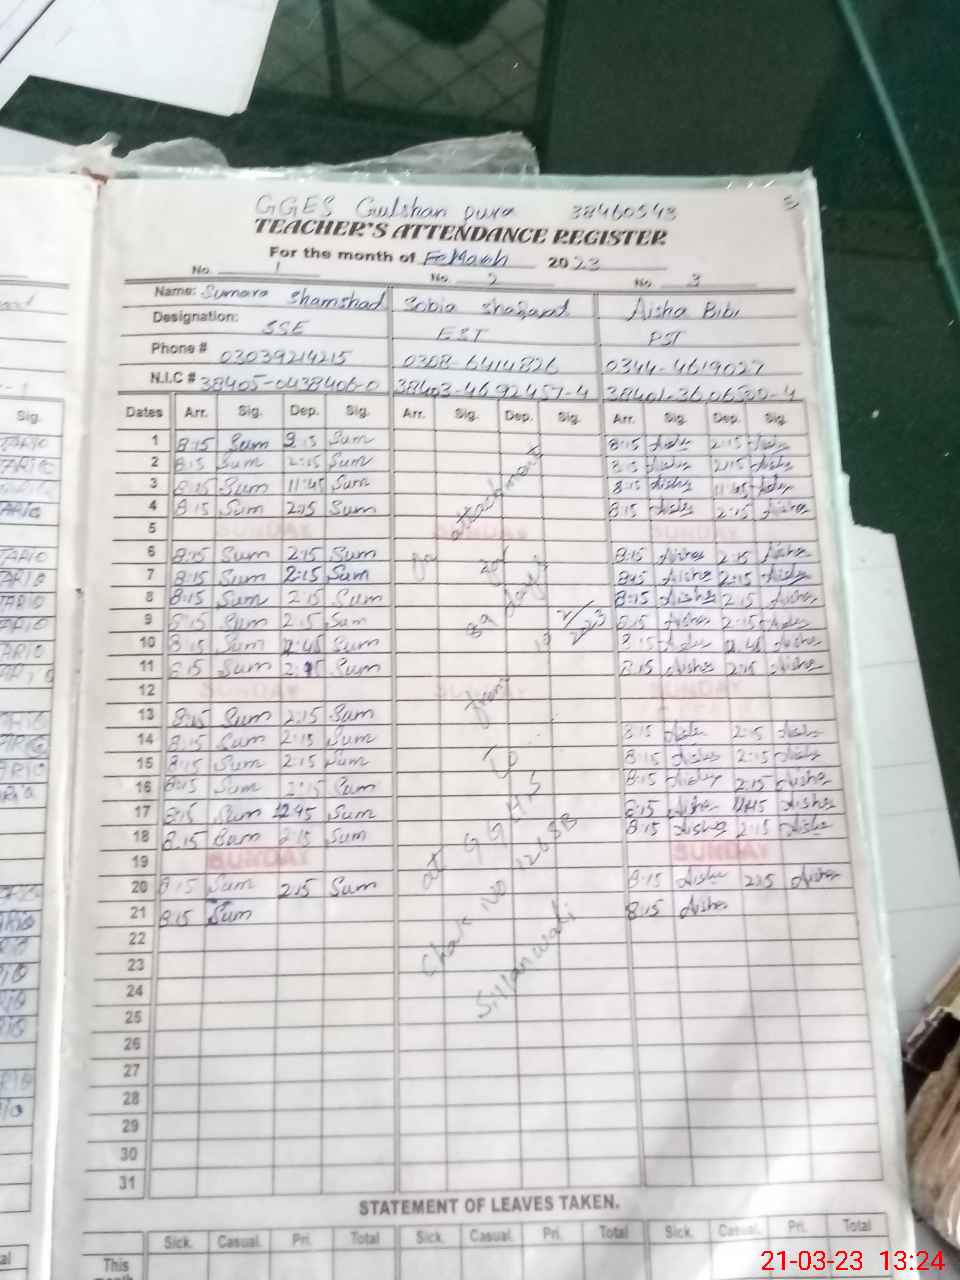 GGES Gulshan pura 38460543
TEACHER'S ATTENDANCE REGISTER
For the month of 2023
No. 1 No. 2 No. 3
Name: Sumara Shamshad Sobia Shajaat Aisha Bibi
Designation: SSE EST PST
Phone # 03039214215 0308-6414826 0344-4619027
N.I.C # 38405-0438406-0 38403-4692457-4
Sig. Dates Arr. Sig. Dep. Sig. Arr. Sig. Dep. Sig. Arr. Sig. Dep. Sig.
1 8:15 Sum Sum 8:15 Aisha 2:15 Aisha
2 8:15 Sum 2:15 Sum 8:15 Aisha 2:15 Aisha
3 8:15 Sum 11:45 Sum 8:15 Aisha 11:45 Aisha
4 8:15 Sum 2:15 Sum 8:15 Aisha 2:15 Aisha
5 SUNDAY SUNDAY SUNDAY
6 8:15 Sum 2:15 Sum 8:15 Aisha 2:15 Aisha
7 8:15 Sum 2:15 Sum 8:15 Aisha 2:15 Aisha
8 8:15 Sum 2:15 Sum 8:15 Aisha 2:15 Aisha
9 8:15 Sum 2:15 Sum 8:15 Aisha 2:15 Aisha
10 8:15 Sum 12:45 Sum 8:15 Aisha 12:45 Aisha
11 8:15 Sum 2:15 Sum 8:15 Aisha 2:15 Aisha
12 SUNDAY SUNDAY SUNDAY
13 8:15 Sum 2:15 Sum
14 8:15 Sum 2:15 Sum 8:15 Aisha 2:15 Aisha
15 8:15 Sum 2:15 Sum 8:15 Aisha 2:15 Aisha
16 8:15 Sum 2:15 Sum 8:15 Aisha 2:15 Aisha
17 8:15 Sum 12:45 Sum 8:15 Aisha Aisha
18 8:15 Sum 2:15 Sum 8:15 Aisha 2:15 Aisha
19 SUNDAY SUNDAY
20 8:15 Sum 2:15 Sum 8:15 Aisha 2:15 Aisha
21 8:15 Sum 8:15 Aisha
22
23
24
25
26
27
28
29
30
31
on attachment
for
89 days
from
To
at GGHS
Chak No 126 SB
Sillanwali
STATEMENT OF LEAVES TAKEN.
Sick. Casual. Pri. Total Sick. Casual. Pri. Total Sick. Casual. Pri. Total
This
month
21-03-23 13:24